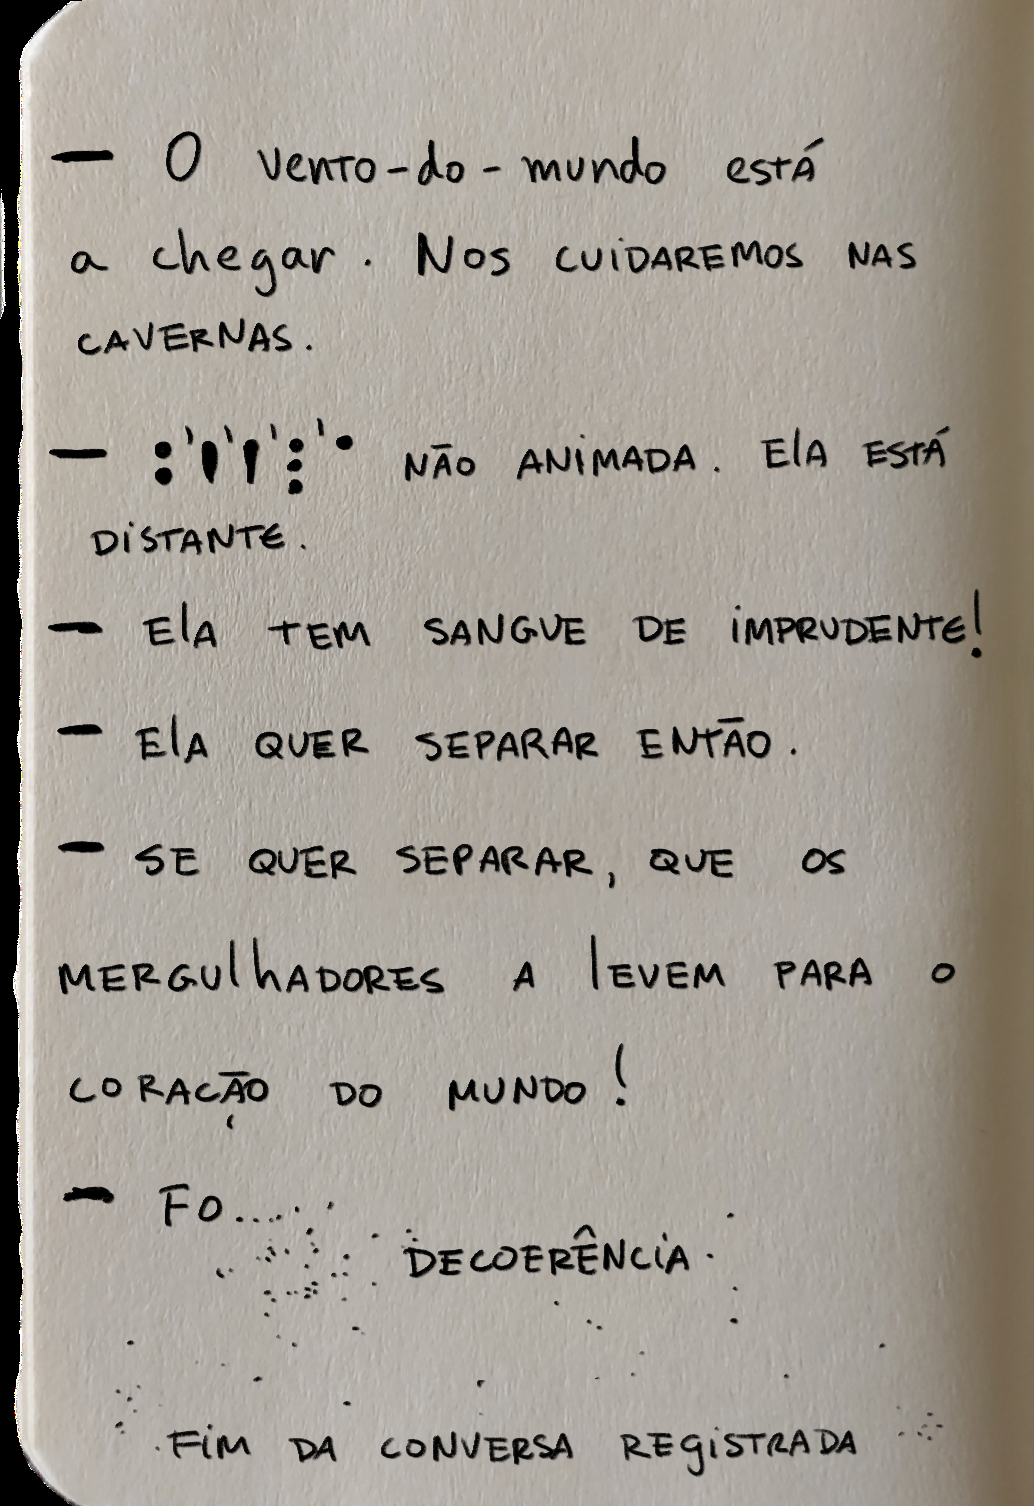 — O vento-do-mundo está
a chegar. Nos cuidaremos nas
cavernas.
— não animada. Ela está
distante.
— Ela tem sangue de imprudente!
— Ela quer separar então.
— Se quer separar, que os
mergulhadores a levem para o
coração do mundo!
— Fo....
decoerência.
Fim da conversa registrada